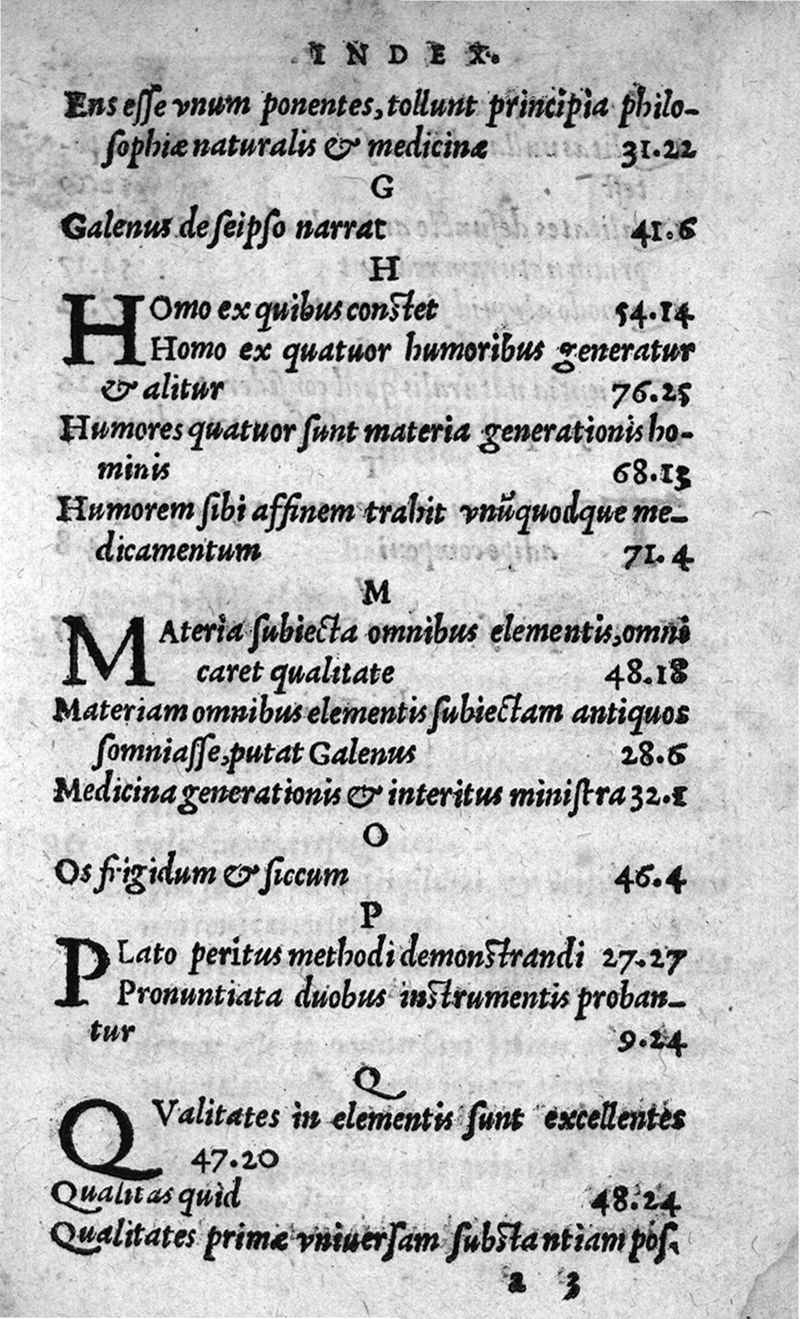 INDEX.
Ens eſſe vnum ponentes, tollunt principia philo-
ſophiæ naturalis & medicinæ 31.22
G
Galenus de ſeipſo narrat 41.6
H
HOmo ex quibus conſtet 54.14
Homo ex quatuor humoribus generatur
& alitur 76.25
Humores quatuor ſunt materia generationis ho-
minis 68.13
Humorem ſibi affinem trahit vnũquodque me-
dicamentum 71.4
M
MAteria ſubiecta omnibus elementis, omni
caret qualitate 48.18
Materiam omnibus elementis ſubiectam antiquos
ſomniaſſe, putat Galenus 28.6
Medicina generationis & interitus miniſtra 32.1
O
Os frigidum & ſiccum 46.4
P
PLato peritus methodi demonſtrandi 27.27
Pronuntiata duobus inſtrumentis proban-
tur 9.24
Q
QValitates in elementis ſunt excellentes
47.20
Qualitas quid 48.24
Qualitates primæ vniuerſam ſubſtantiam poſ-
a 3